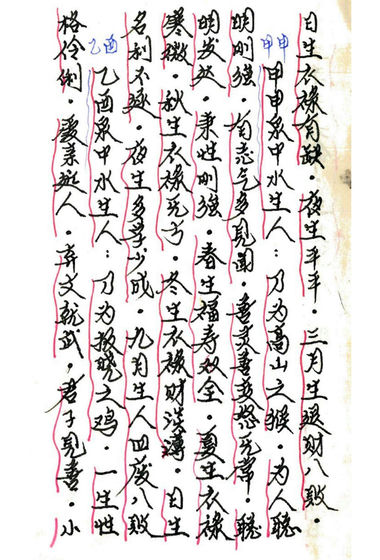 日生衣禄有缺。夜生平平。三月生破财八败。
甲申
甲申泉中水生人：乃为高山之猴。为人聪
明刚强。有志气多见闻。喜喜变怒无常。聪
明发达。秉性刚强。春生福寿双全。夏生衣禄
寒微。秋生衣禄无亏。冬生衣禄财淡薄。日生
名利不逐。夜生多学少成。九月生人四废八败
乙酉
乙酉泉中水生人：乃为报晓之鸡。一生性
格伶俐。爱亲近人。弃文就武。君子见喜。小